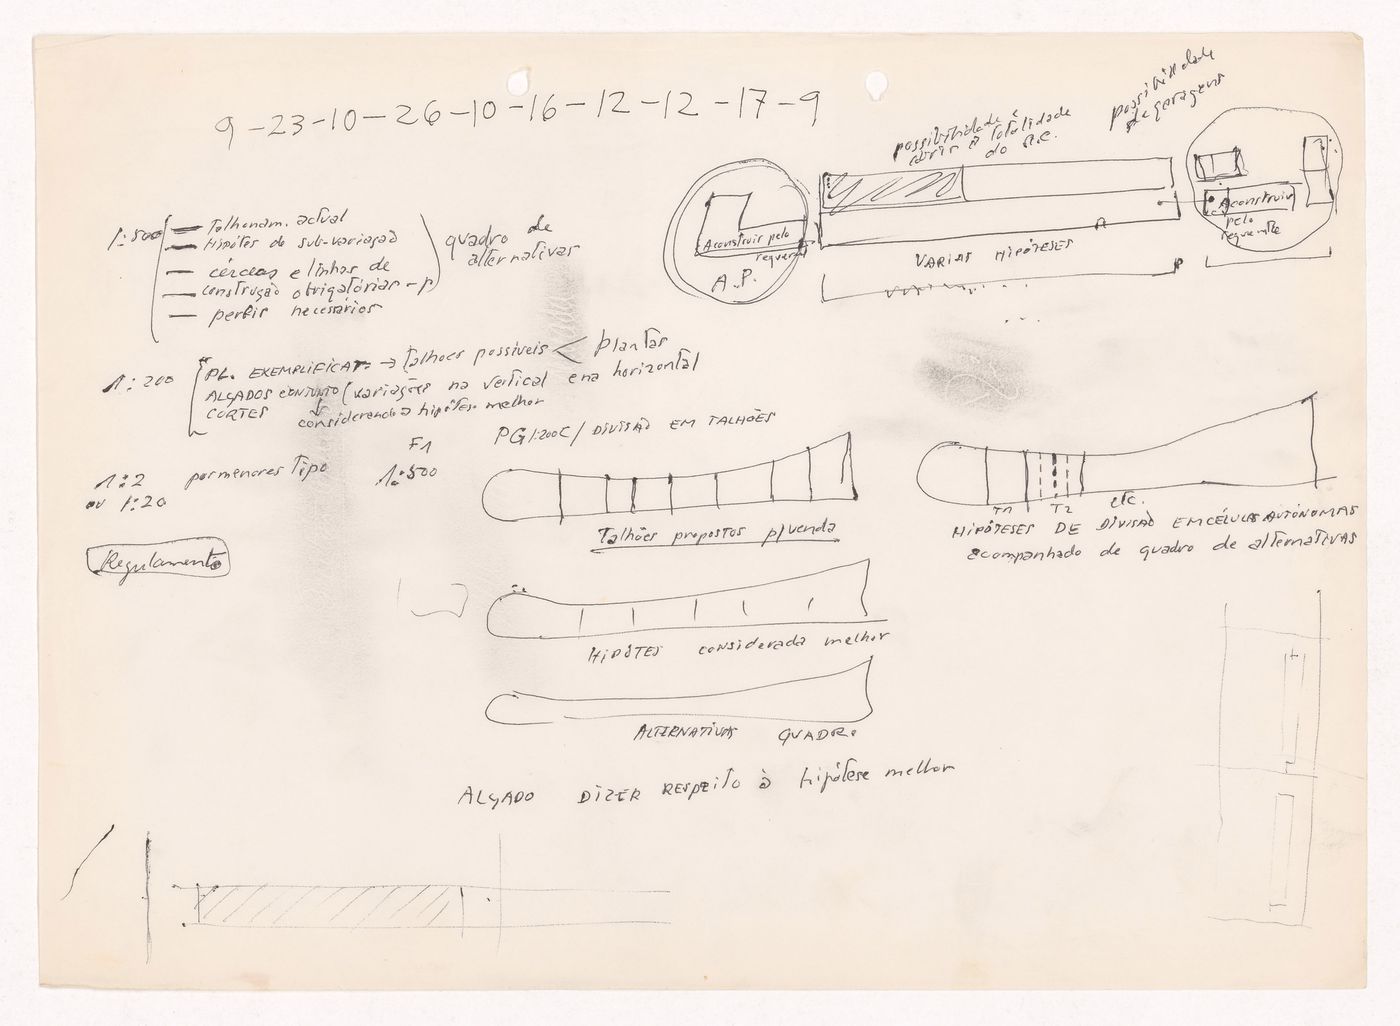 9-23-10-26-10-16-12-12-17-9
possibilidade
de garagens
possibilidade é
abrir à totalidade
do R.C.
A construir pelo
A.P.
A construir
pelo
requerente
VARIAS HIPÓTESES
1:500
Talhonam. actual
Hipótes de sub-variação
cérceas e linhas de
construção obrigatórias - p
perfis necessários
quadro de
alternativas
1:200
PL. EXEMPLIFICAT. → talhoes possíveis < plantas
ALÇADOS CONJUNTO (variações na vertical e na horizontal
CORTES considerando a hipótese melhor
1:2 pormenores tipo
ou 1:20
F1
1:500
PG 1:200 C/ DIVISÃO EM TALHÕES
Talhões propostos p/venda
T1 T2 etc.
HIPÓTESES DE DIVISÃO EM CÉLULAS AUTÓNOMAS
acompanhado de quadro de alternativas
Regulamento
HIPÓTES considerada melhor
ALTERNATIVAS QUADR.
ALÇADO DIZER RESPEITO à hipótese melhor